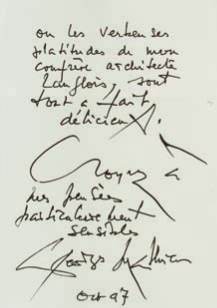 ou les verbeuses
platitudes de mon
confrère architecte
Langlois, sont
tout a fait
délicieux.
Croyez à
mes pensées
particulièrement
sensibles
Georges Mathieu
Oct 97